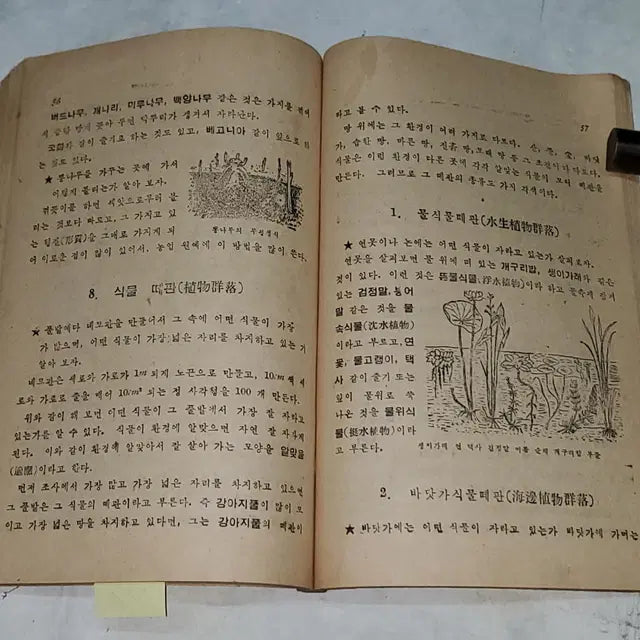 56
버드나무, 개나리, 미루나무, 백양나무 같은 것은 가지를
국화와 같이 줄기로 하는 것도 있고, 베고니아 같이 잎으로 하
는 것도 있다.
★ 뽕나무를 가꾸는 곳에 가서
어떻게 불리는가 알아 보자.
휘묻이를 하면 씨앗으로부터
는 것보다 빠르고, 그 가지고 있
는 형질(形質)을 그대로 가지게 되
어 이로운 점이 많이 있어서, 농업 원예에 이 방법을 많이 쓴다.
뽕나무의 무성생식
8. 식물 떼판(植物群落)
★ 풀밭에다 네모판을 만들어서 그 속에 어떤 식물이 가장
가 많으며, 어떤 식물이 가장 넓은 자리를 차지하고 있는가
알아 보자.
네모판은 세로와 가로가 1m 되게 노끈으로 만들고, 10cm 씩 세
로와 가로로 줄을 매어 되는 정사각형을 100 개 만든다.
위와 같이 해 보면 어떤 식물이 그 풀밭에서 가장 잘 자라고
있는가를 할 수 있다. 식물이 환경에 알맞으면 자연 잘 자라게
된다. 이와 같이 환경에 알맞아서 잘 살아 가는 모양을 알맞음
(適應)이라고 한다.
먼저 조사에서 가장 많고 가장 넓은 자리를 차지하고 있으면
그 풀밭은 그 식물의 떼판이라고 부른다. 즉 강아지풀이 많이 모
이고 가장 넓은 땅을 차지하고 있다면, 그는 강아지풀의 떼판이
57
라고 볼 수 있다.
땅 위에는 그 환경이 여러 가지로 다르다. 산, 들, 강, 바닷
가, 습한 땅, 마른 땅, 진흙 땅, 모래 땅 등 그 조건이 다르다.
식물은 이런 환경이 다른 곳에 각각 알맞는 식물이 모여 떼판을
만든다. 그러므로 그 떼판의 종류도 가지 각색이다.
1. 물식물떼판(水生植物群落)
★ 연못이나 논에는 어떤 식물이 자라고 있는가 살펴보자.
연못을 살펴보면 물 위에 떠 있는 개구리밥, 생이가래와 같은
것이 있다. 이런 것은 뜬물식물(浮水植物)이라 하고 물속에 잠겨
있는 검정말, 붕어
말 같은 것을 물
속식물(沈水植物)
이라고 부르고, 연
꽃, 물고랭이, 택
사 같이 줄기 또는
잎이 물위로 쑥
나온 것을 물위식
물(挺水植物)이라
고 부른다.
생이가래 연 택사 검정말 개구리밥 부들
2. 바닷가식물떼판(海邊植物群落)
★ 바닷가에는 어떤 식물이 자라고 있는가 바닷가에 가며는